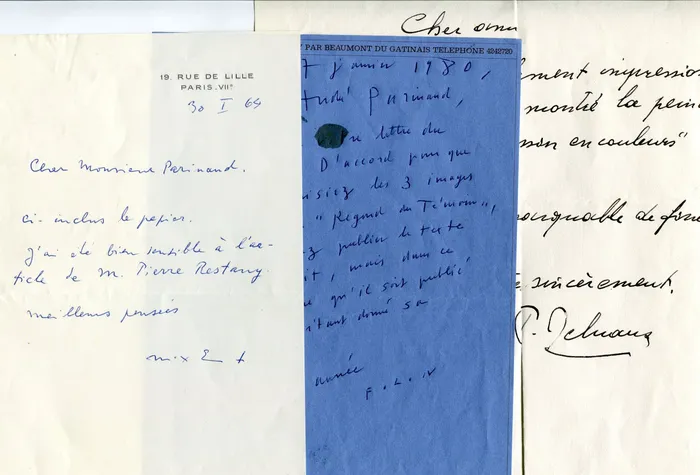 19. RUE DE LILLE
PARIS.VIIe
30 I 64
Cher Monsieur Parinaud.
ci-inclus le papier.
j'ai été bien sensible à l'ar-
ticle de M. Pierre Restany.
meilleures pensées
PAR BEAUMONT DU GATINAIS TELEPHONE 4242720
7 janvier 1980,
Parinaud,
re lettre du
D'accord pour que
les 3 images
"Regard du Témoin",
publier le texte
it, mais dans ce
qu'il soit publié
étant donné sa
année
F.O.L.V
Cher ami
ment impression
montré la pein
son en couleurs"
arquable de fine
sincèrement.